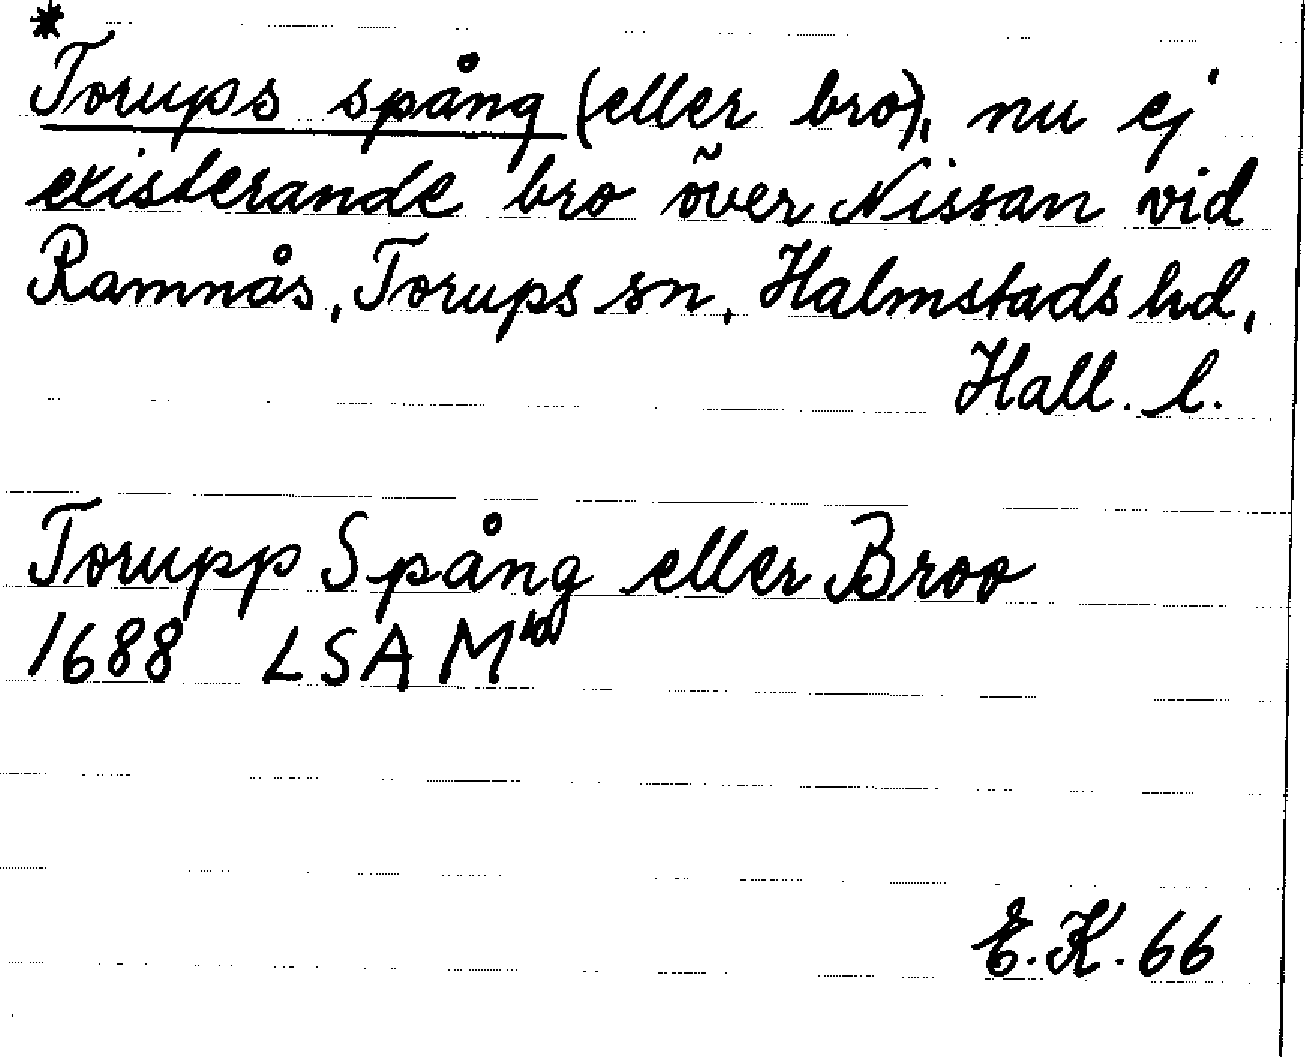 *
Torups spång (eller bro), nu ej
existerande bro över Nissan vid
Ramnås, Torups sn, Halmstads hd,
Hall. l.
Torupp Spång eller Broo
1688 LSA M 10
E.K. 66